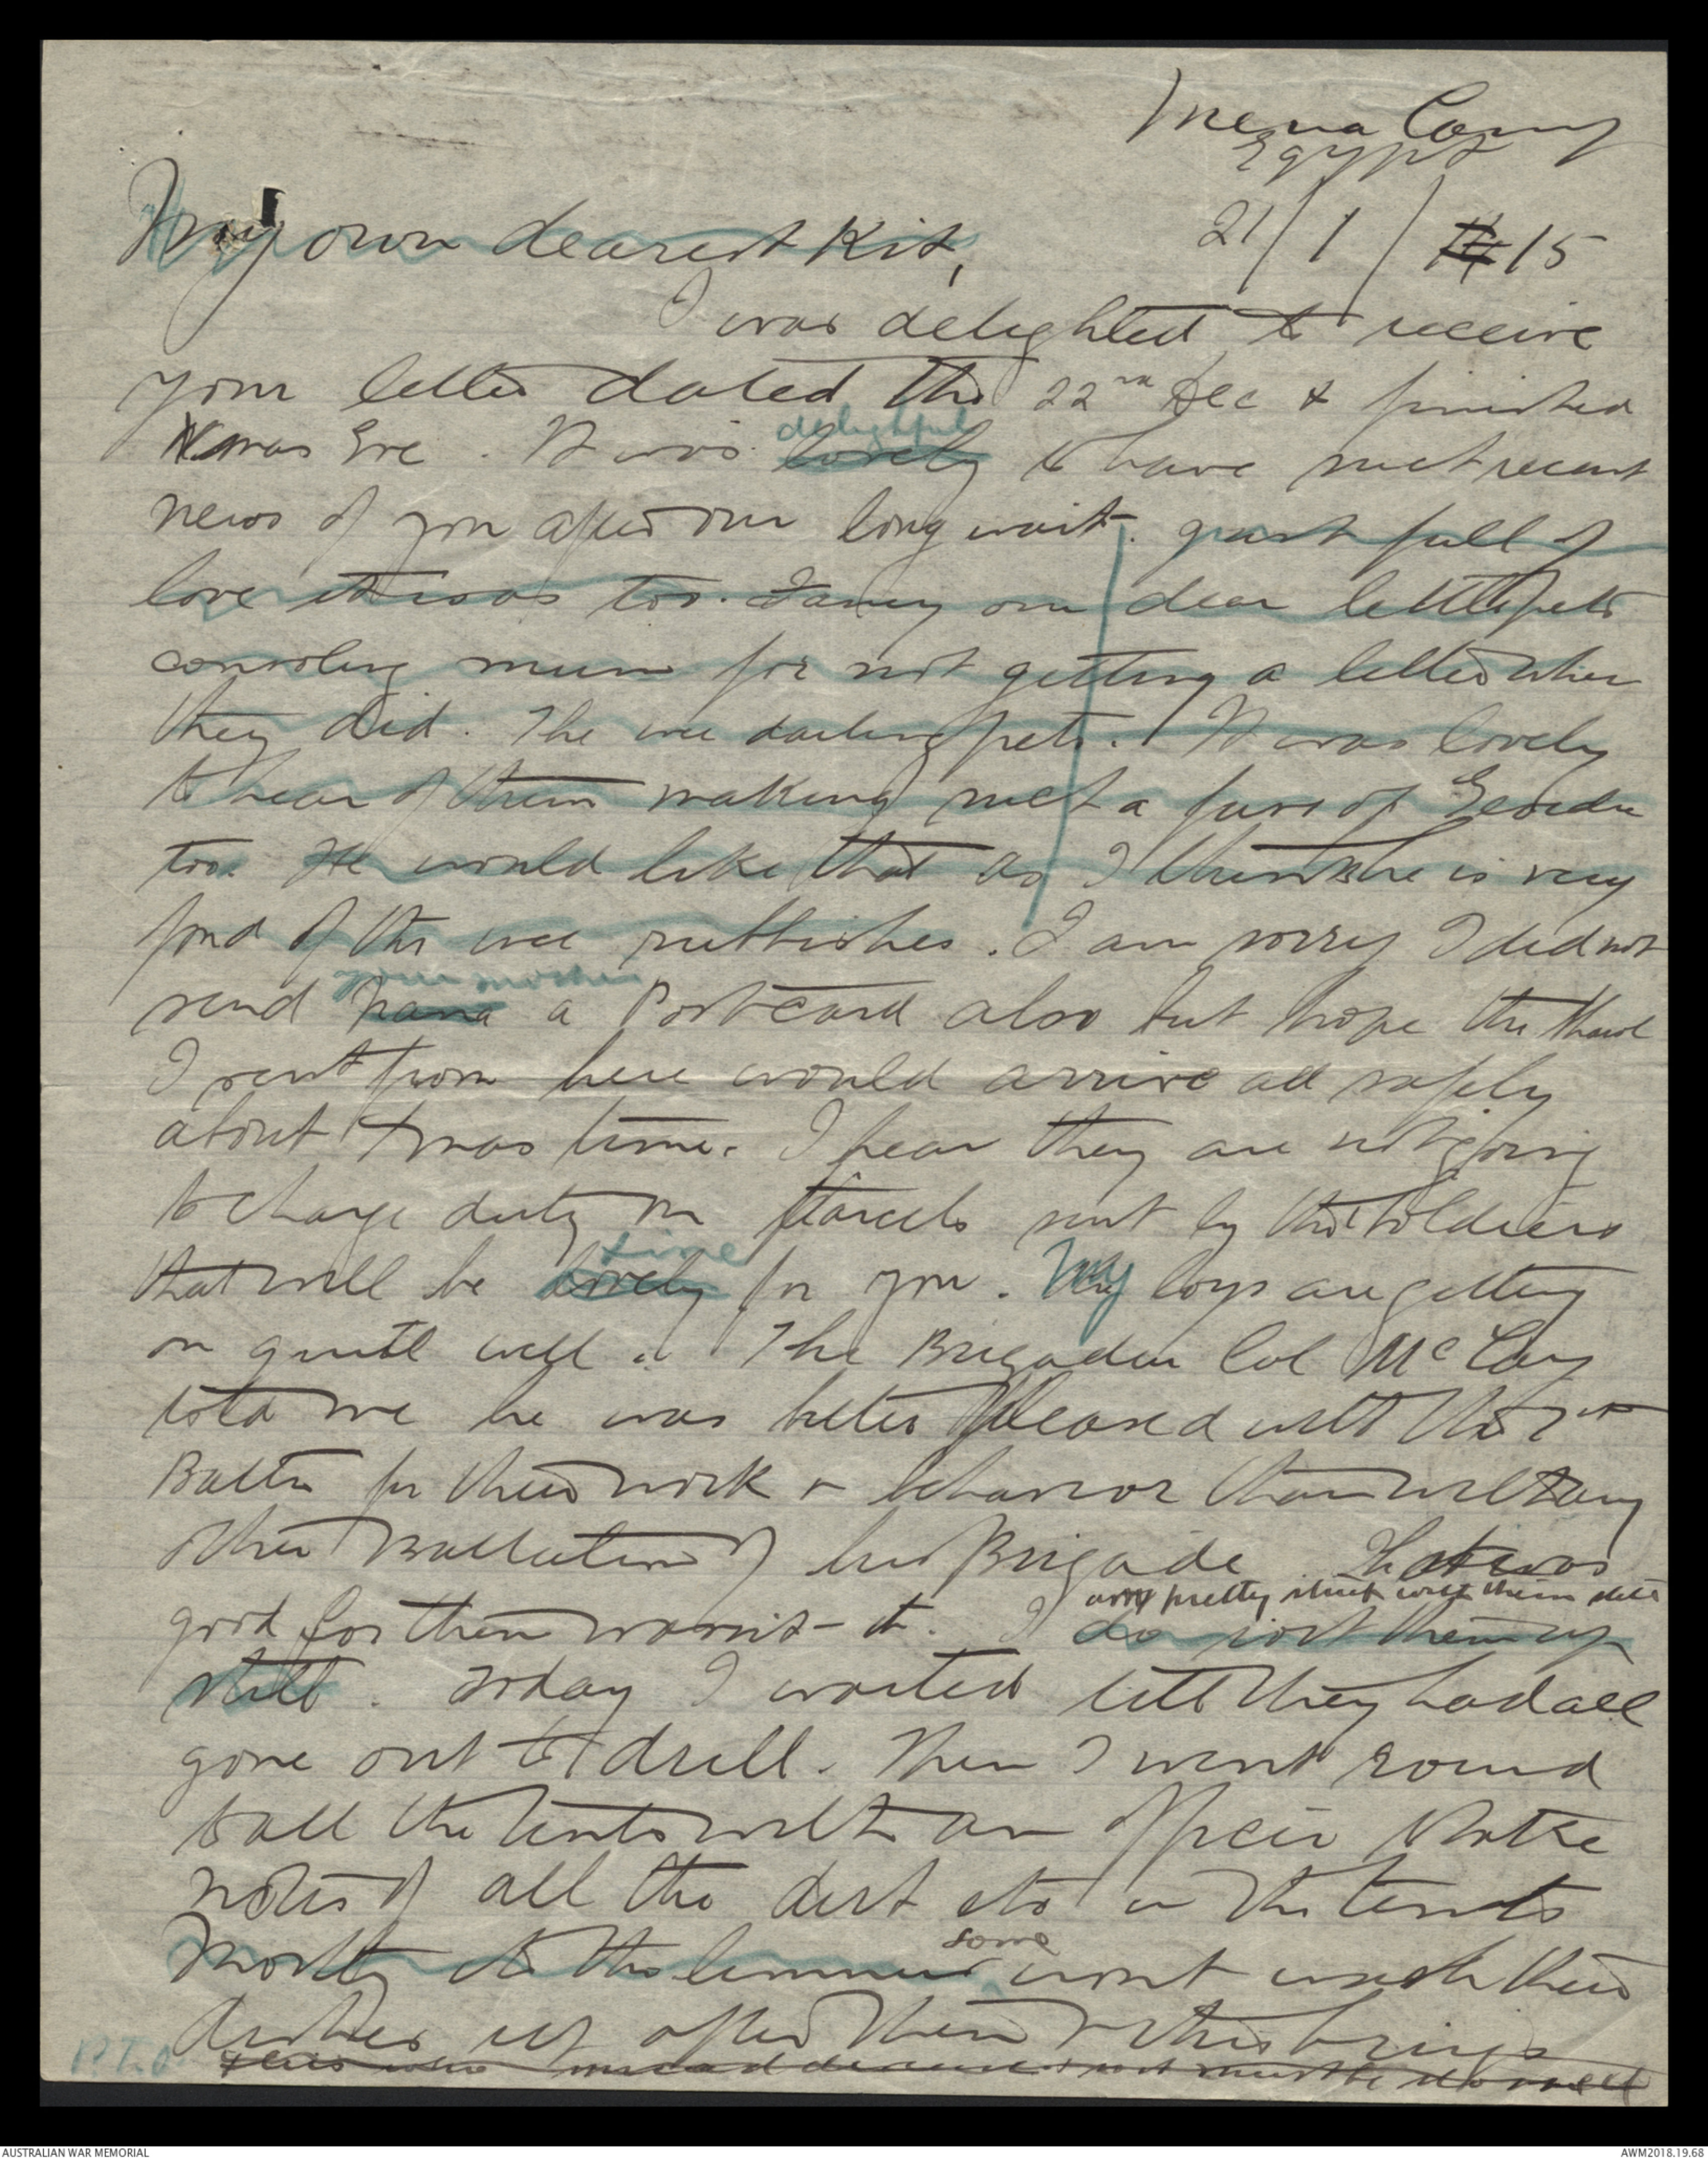 Mena Camp
Egypt
21/1/14 15
My own dearest Kit,
I was delighted to receive
your letter dated the 22nd Dec & finished
Xmas Eve. It was lovely delightful to have such recent
news of you after our long wait. just full of
love it was too. Fancy our dear little pets
consoling mum for not getting a letter when
they did. The wee darling pets. It was lovely
to hear of them making such a fuss of Geordie
too. He would like that as I think he is very
fond of the wee rubbishes. I am sorry I did not
send Nana your mother a Postcard also but hope the shawl
I sent from here would arrive all safely
about Xmas time. I hear they are not going
to charge duty on parcels sent by the soldiers
that will be lovely fine for you. My boys are getting
on quite well. The Brigadier Col McCay
told me he was better pleased with the 7th
Battn for their work & behavior than with any
other Battalion of his Brigade That was
good for them wasn't it. I am pretty strict with them still
do joist them up
still. Today I waited till they had all
gone out to drill. Then I went round
to all the tents with an officer to take
notes of all the dirt etc in the tents
Mostly it's the some wont wash their
dishes up after them & this brings
P.T.O